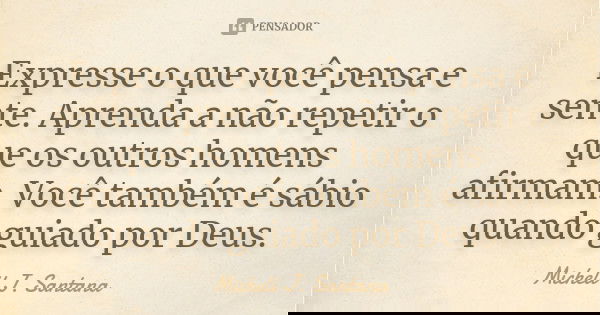 PENSADOR
Expresse o que você pensa e
sente. Aprenda a não repetir o
que os outros homens
afirmam. Você também é sábio
quando guiado por Deus.
Mickelly T. Santana